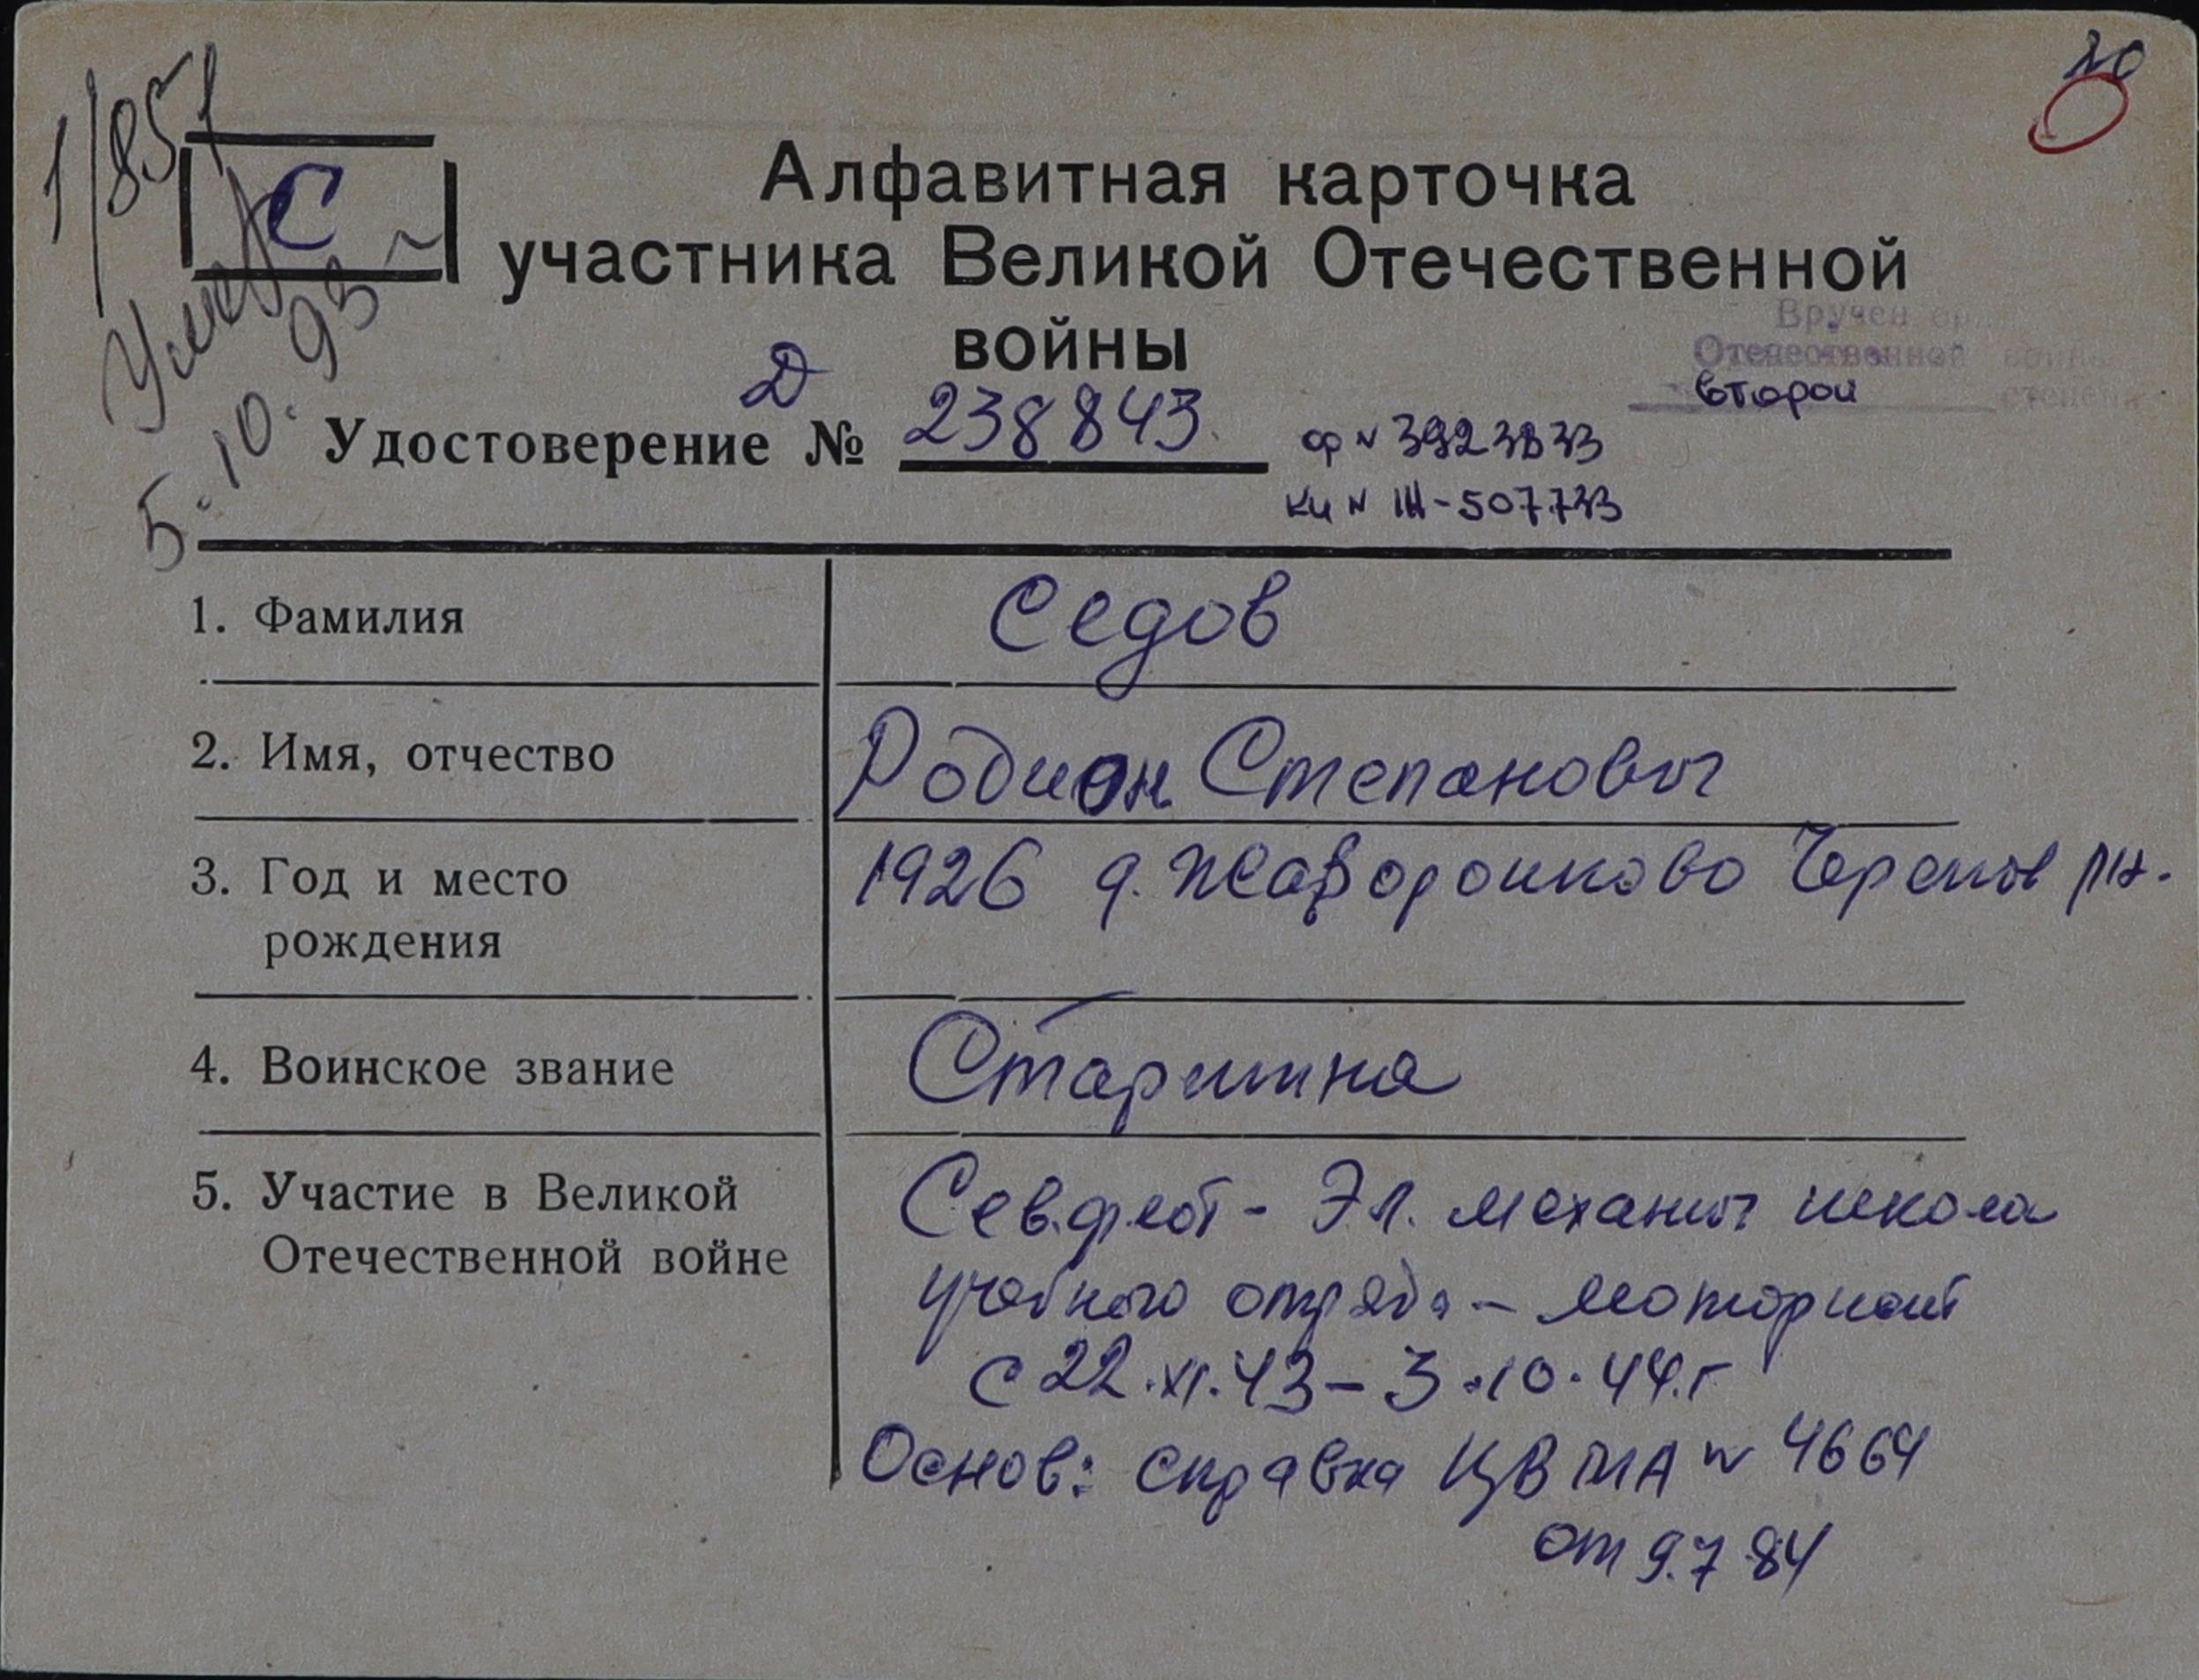 20
1/85 г
С
Умер
5.10.93
Алфавитная карточка
участника Великой Отечественной
войны
Вручен
Отечественной войны
второй степени
Удостоверение № Д 238843
ор № 3923833
кн № III-507733
1. Фамилия Седов
2. Имя, отчество Родион Степанович
3. Год и место 1926 д. Жаворонково Черепов рн.
рождения
4. Воинское звание Старшина
5. Участие в Великой Сев.флот - Эл. механич школа
Отечественной войне учебного отряда - моторист
с 22.XI.43 - 3.10.44.г
Основ: справка ЦВМА № 4664
от 9.7.84